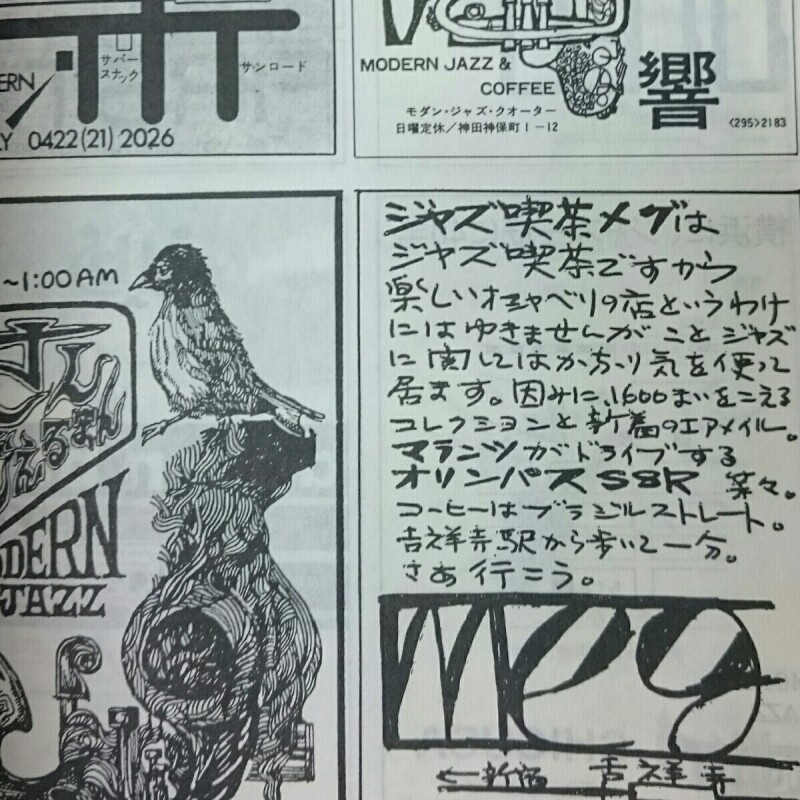 サパー
スナック
サンロード
ERN
LY 0422(21)2026
MODERN JAZZ &
COFFEE
モダン・ジャズ・クオーター
日曜定休／神田神保町1-12
響
<295>2183
~1:00AM
えるまん
ODERN
JAZZ
ジャズ喫茶メグは
ジャズ喫茶ですから
楽しいオシャベリの店というわけ
にはゆきませんが ことジャズ
に関してはがっちり気を使って
居ます。因みに、1600まいをこえる
コレクションと新着のエアメイル。
マランツがドライブする
オリンパスS8R 等々。
コーヒーはブラジルストレート。
吉祥寺駅から歩いて一分。
さあ行こう。
Meg
←新宿 吉祥寺